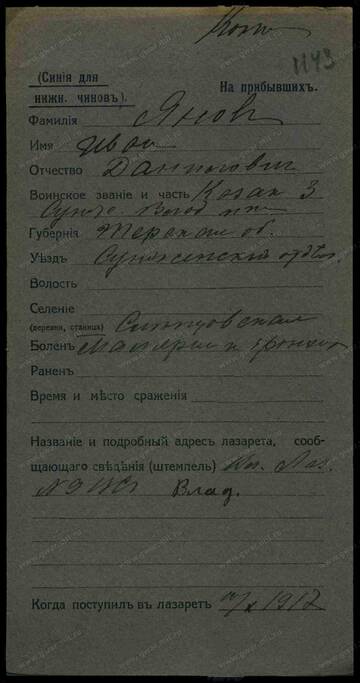 1143
(Синія для
нижн. чиновъ).
На прибывшихъ.
Фамилія Яновъ
Имя Иван
Отчество Данилович
Воинское званіе и часть Козак 3
Сунж. Влад. пп
Губернія Терская об.
Уѣздъ Сунженскій отдѣл.
Волость
Селеніе
(деревня, станица) Слепцовская
Боленъ Малерия и бронхит
Раненъ
Время и мѣсто сраженія
Названіе и подробный адресъ лазарета, сооб-
щающаго свѣдѣнія (штемпель) Лаз.
Влад.
Когда поступилъ въ лазаретъ /X 1917